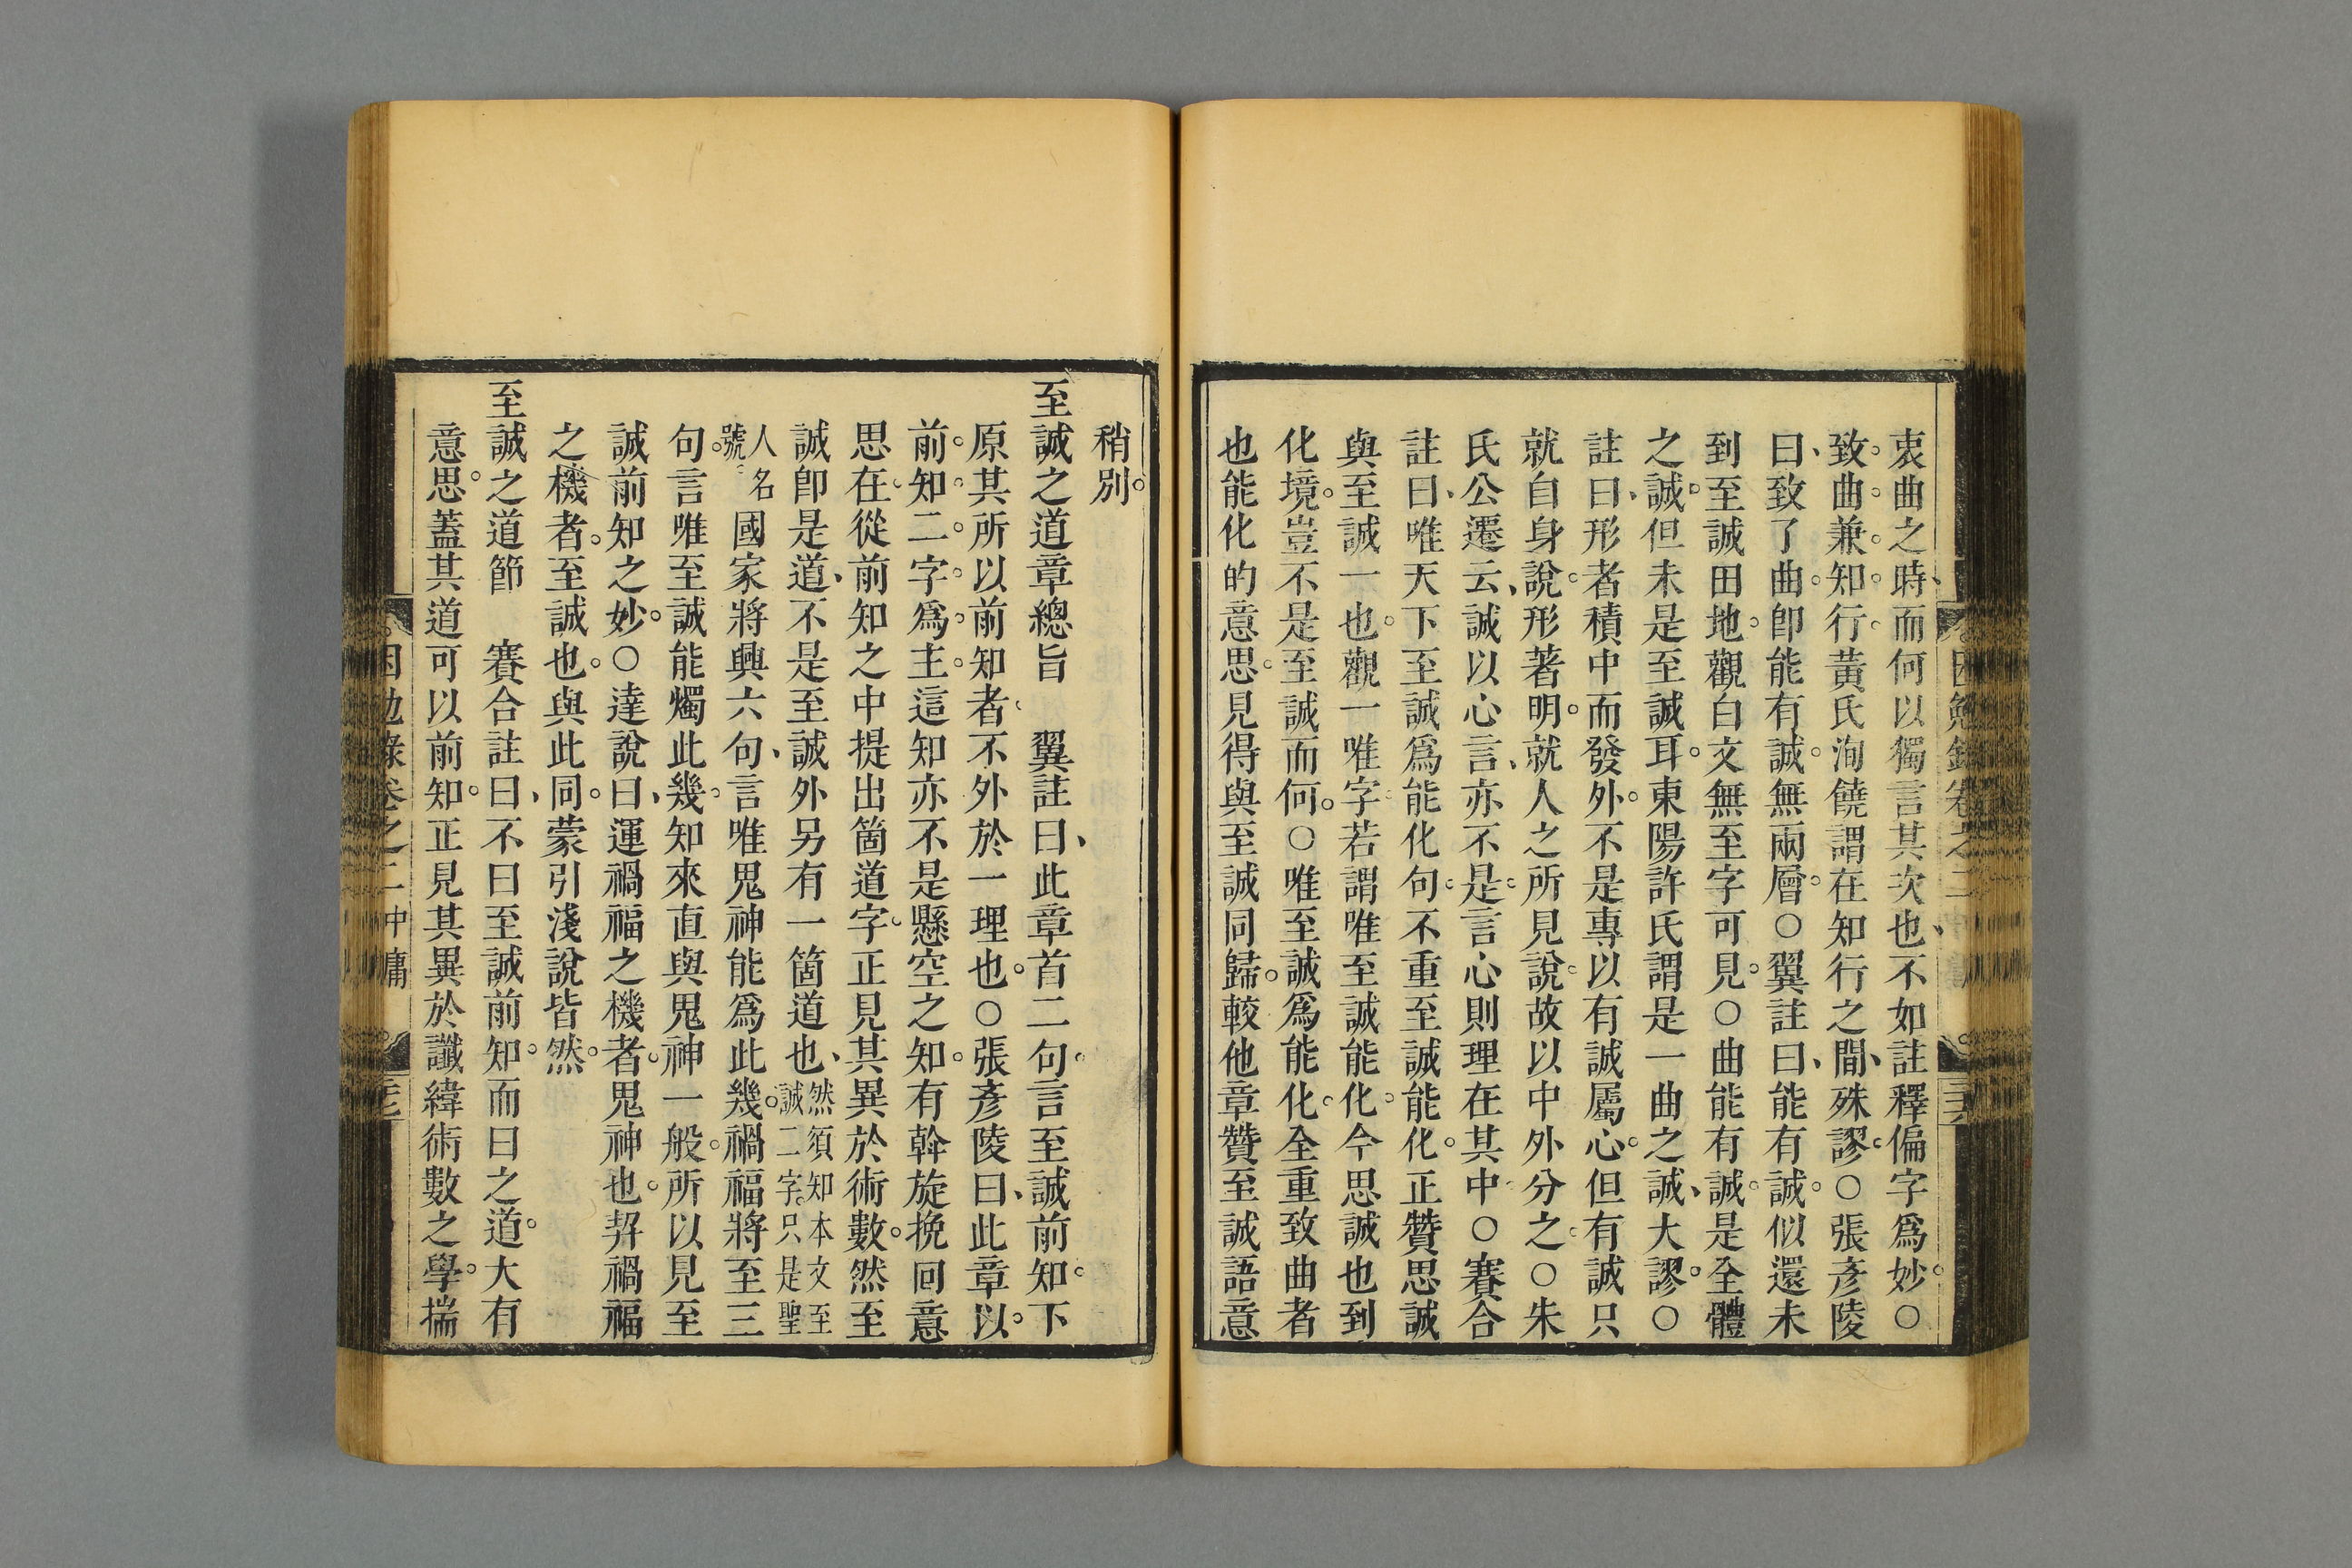 衷曲之時而何以獨言其次也不如註釋偏字爲妙○
致曲兼知行黃氏洵饒謂在知行之間殊謬○張彥陵
曰致了曲卽能有誠無兩層○翼註曰能有誠似還未
到至誠田地觀白文無至字可見○曲能有誠是全體
之誠但未是至誠耳東陽許氏謂是一曲之誠大謬○
註曰形者積中而發外不是專以有誠屬心但有誠只
就自身說形著明就人之所見說故以中外分之○朱
氏公遷云誠以心言亦不是言心則理在其中○賽合
註曰唯天下至誠爲能化句不重至誠能化正贊思誠
與至誠一也觀一唯字若謂唯至誠能化今思誠也到
化境豈不是至誠而何○唯至誠爲能化全重致曲者
也能化的意思見得與至誠同歸較他章贊至誠語意
稍別
至誠之道章總旨　翼註曰此章首二句言至誠前知下
原其所以前知者不外於一理也○張彥陵曰此章以
前知二字爲主這知亦不是懸空之知有斡旋挽回意
思在從前知之中提出箇道字正見其異於術數然至
誠卽是道不是至誠外另有一箇道也然須知本文至誠二字只是聖
人名號　國家將興六句言唯鬼神能爲此幾禍福將至三
句言唯至誠能燭此幾知來直與鬼神一般所以見至
誠前知之妙○達說曰運禍福之機者鬼神也契禍福
之機者至誠也與此同蒙引淺說皆然
至誠之道節　賽合註曰不曰至誠前知而曰之道大有
意思蓋其道可以前知正見其異於讖緯術數之學揣
困勉錄卷之二 中庸